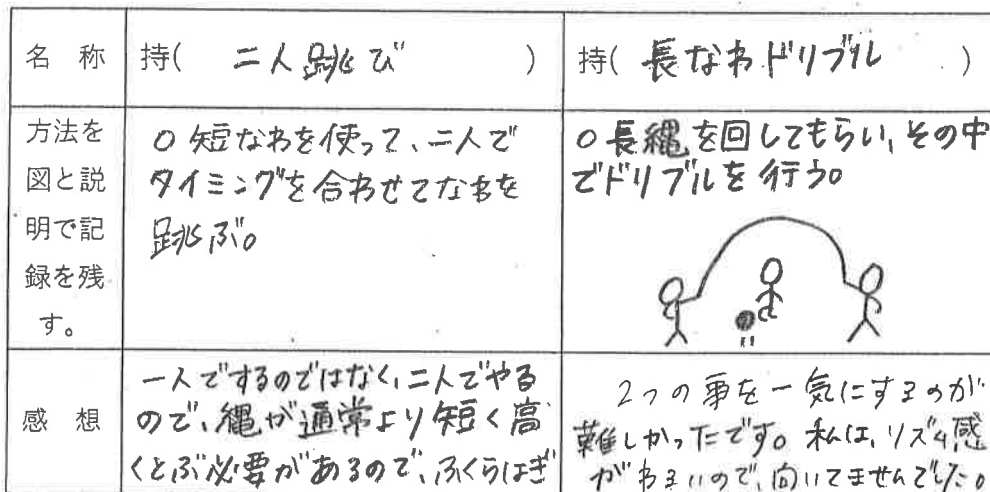 名 称
持( 二人跳び )
持( 長なわドリブル )
方法を
図と説
明で記
録を残
す。
○ 短なわを使って、二人で
タイミングを合わせてなわを
跳ぶ。
○長縄を回してもらい、その中
でドリブルを行う。
感 想
一人でするのではなく、二人でやる
ので、縄が通常より短く高
くとぶ必要があるので、ふくらはぎ
2つの事を一気にするのが
難しかったです。私は、リズム感
がわるいので、向いてませんでした。